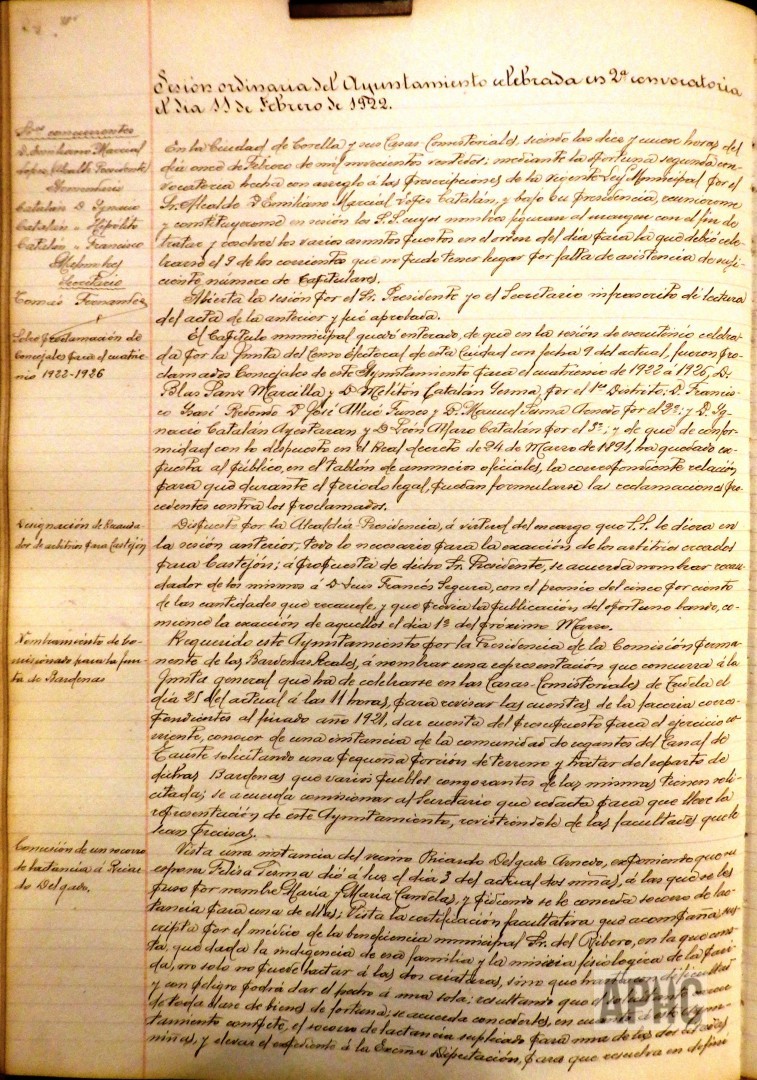 Sesión ordinaria del Ayuntamiento celebrada en 2ª convocatoria
el dia 11 de Febrero de 1922.
Sres. concurrentes
D. Emiliano Marcial
López, Alcalde Presidente
Catalán D. Ignacio
Catalán " Hipólito
Catalán " Francisco
Secretario
Tomás Fernandez
En la Ciudad de Corella y sus Casas-Consistoriales, siendo las diez y nueve horas del
dia once de Febrero de mil novecientos veintidos; mediante la oportuna segunda con-
vocatoria hecha con arreglo á las prescripciones de la vigente Ley Municipal por el
Sr. Alcalde D. Emiliano Marcial López Catalán, y bajo su presidencia, reunieronse
y constituyeronse en sesión los S.S. cuyos nombres figuran al margen con el fin de
tratar y resolver los varios asuntos puestos en el orden del dia para la que debió cele-
brarse el 9 de los corrientes que no pudo tener lugar por falta de asistencia de sufi-
ciente número de Capitulares.
Abierta la sesión por el Sr. Presidente yo el Secretario infrascrito dí lectura
del acta de la anterior y fué aprobada.
Sobre proclamación de
Concejales para el cuatrie-
nio 1922-1926
El Capítulo municipal quedó enterado, de que en la sesión de escrutinio celebra-
da por la Junta del Censo Electoral de esta Ciudad con fecha 9 del actual, fueron pro-
clamados Concejales de este Ayuntamiento para el cuatrienio de 1922 á 1926, D.
Blas Sanz Marcilla y D. Melitón Catalán por el 1er Distrito; D. Francis-
co Redondo D. José Funes y D. Manuel por el 2º; y D. Yg-
nacio Catalán y D. León Catalán por el 3º; y de que de confor-
midad con lo dispuesto en el Real decreto de 24 de Marzo de 1891, ha quedado ex-
puesta al público, en el tablón de anuncios oficiales, la correspondiente relación,
para que durante el periodo legal, puedan formularse las reclamaciones pro-
cedentes contra los proclamados.
Designación de Recauda-
dor de arbitrios para Castejón
Dispuesto por la Alcaldia-Presidencia, á virtud del encargo que S.S. le diera en
la sesión anterior, todo lo necesario para la exacción de los arbitrios creados
para Castejón; á propuesta de dicho Sr. Presidente, se acuerda nombrar recau-
dador de los mismos á D. Luis Francés Segura, con el premio del cinco por ciento
de las cantidades que recaude, y que previa la publicación del oportuno bando, co-
mience la exacción de aquellos el dia 1º del próximo Marzo.
Nombramiento de Co-
misionado para la Jun-
ta de Bardenas
Requerido este Ayuntamiento por la Presidencia de la Comisión perma-
nente de las Bardenas Reales, á nombrar una representación que concurra á la
Junta general que ha de celebrarse en las Casas-Consistoriales de Tudela el
dia 25 del actual á las 11 horas, para revisar las cuentas de la facería corres-
pondientes al pasado año 1921, dar cuenta del presupuesto para el ejercicio co-
rriente, conocer de una instancia de la comunidad de regantes del Canal de
Tauste solicitando una pequeña porción de terreno y tratar del reparto de
dichas Bardenas que varios pueblos congozantes de las mismas tienen soli-
citada; se acuerda comisionar al Secretario que redacta para que lleve la
representación de este Ayuntamiento, revistiéndole de las facultades que le
sean precisas.
Concesión de un socorro
de lactancia á Ricar-
do Delgado.
Vista una instancia del vecino Ricardo Delgado Arnedo, exponiendo que su
esposa Felisa dió á luz el dia 3 del actual dos niñas, á las que se les
puso por nombre María y María Candelas, y pidiendo se le conceda socorro de lac-
tancia para una de ellas; vista la certificación facultativa que acompaña sus-
crita por el médico de la beneficencia municipal Sr. del Ribero, en la que cons-
ta, que dada la indigencia de esa familia y la miseria fisiológica de la pari-
da, no solo no puede lactar á las dos criaturas, sino que dificultad
y con peligro podrá dar el pecho á una sola; resultando que carece
de toda clase de bienes de fortuna; se acuerda concederles, en cuanto
tamiento compete, el socorro de lactancia suplicado para una de las dos
niñas, y elevar el expediente á la Excma Diputación, para que resuelva en defini-
APHC